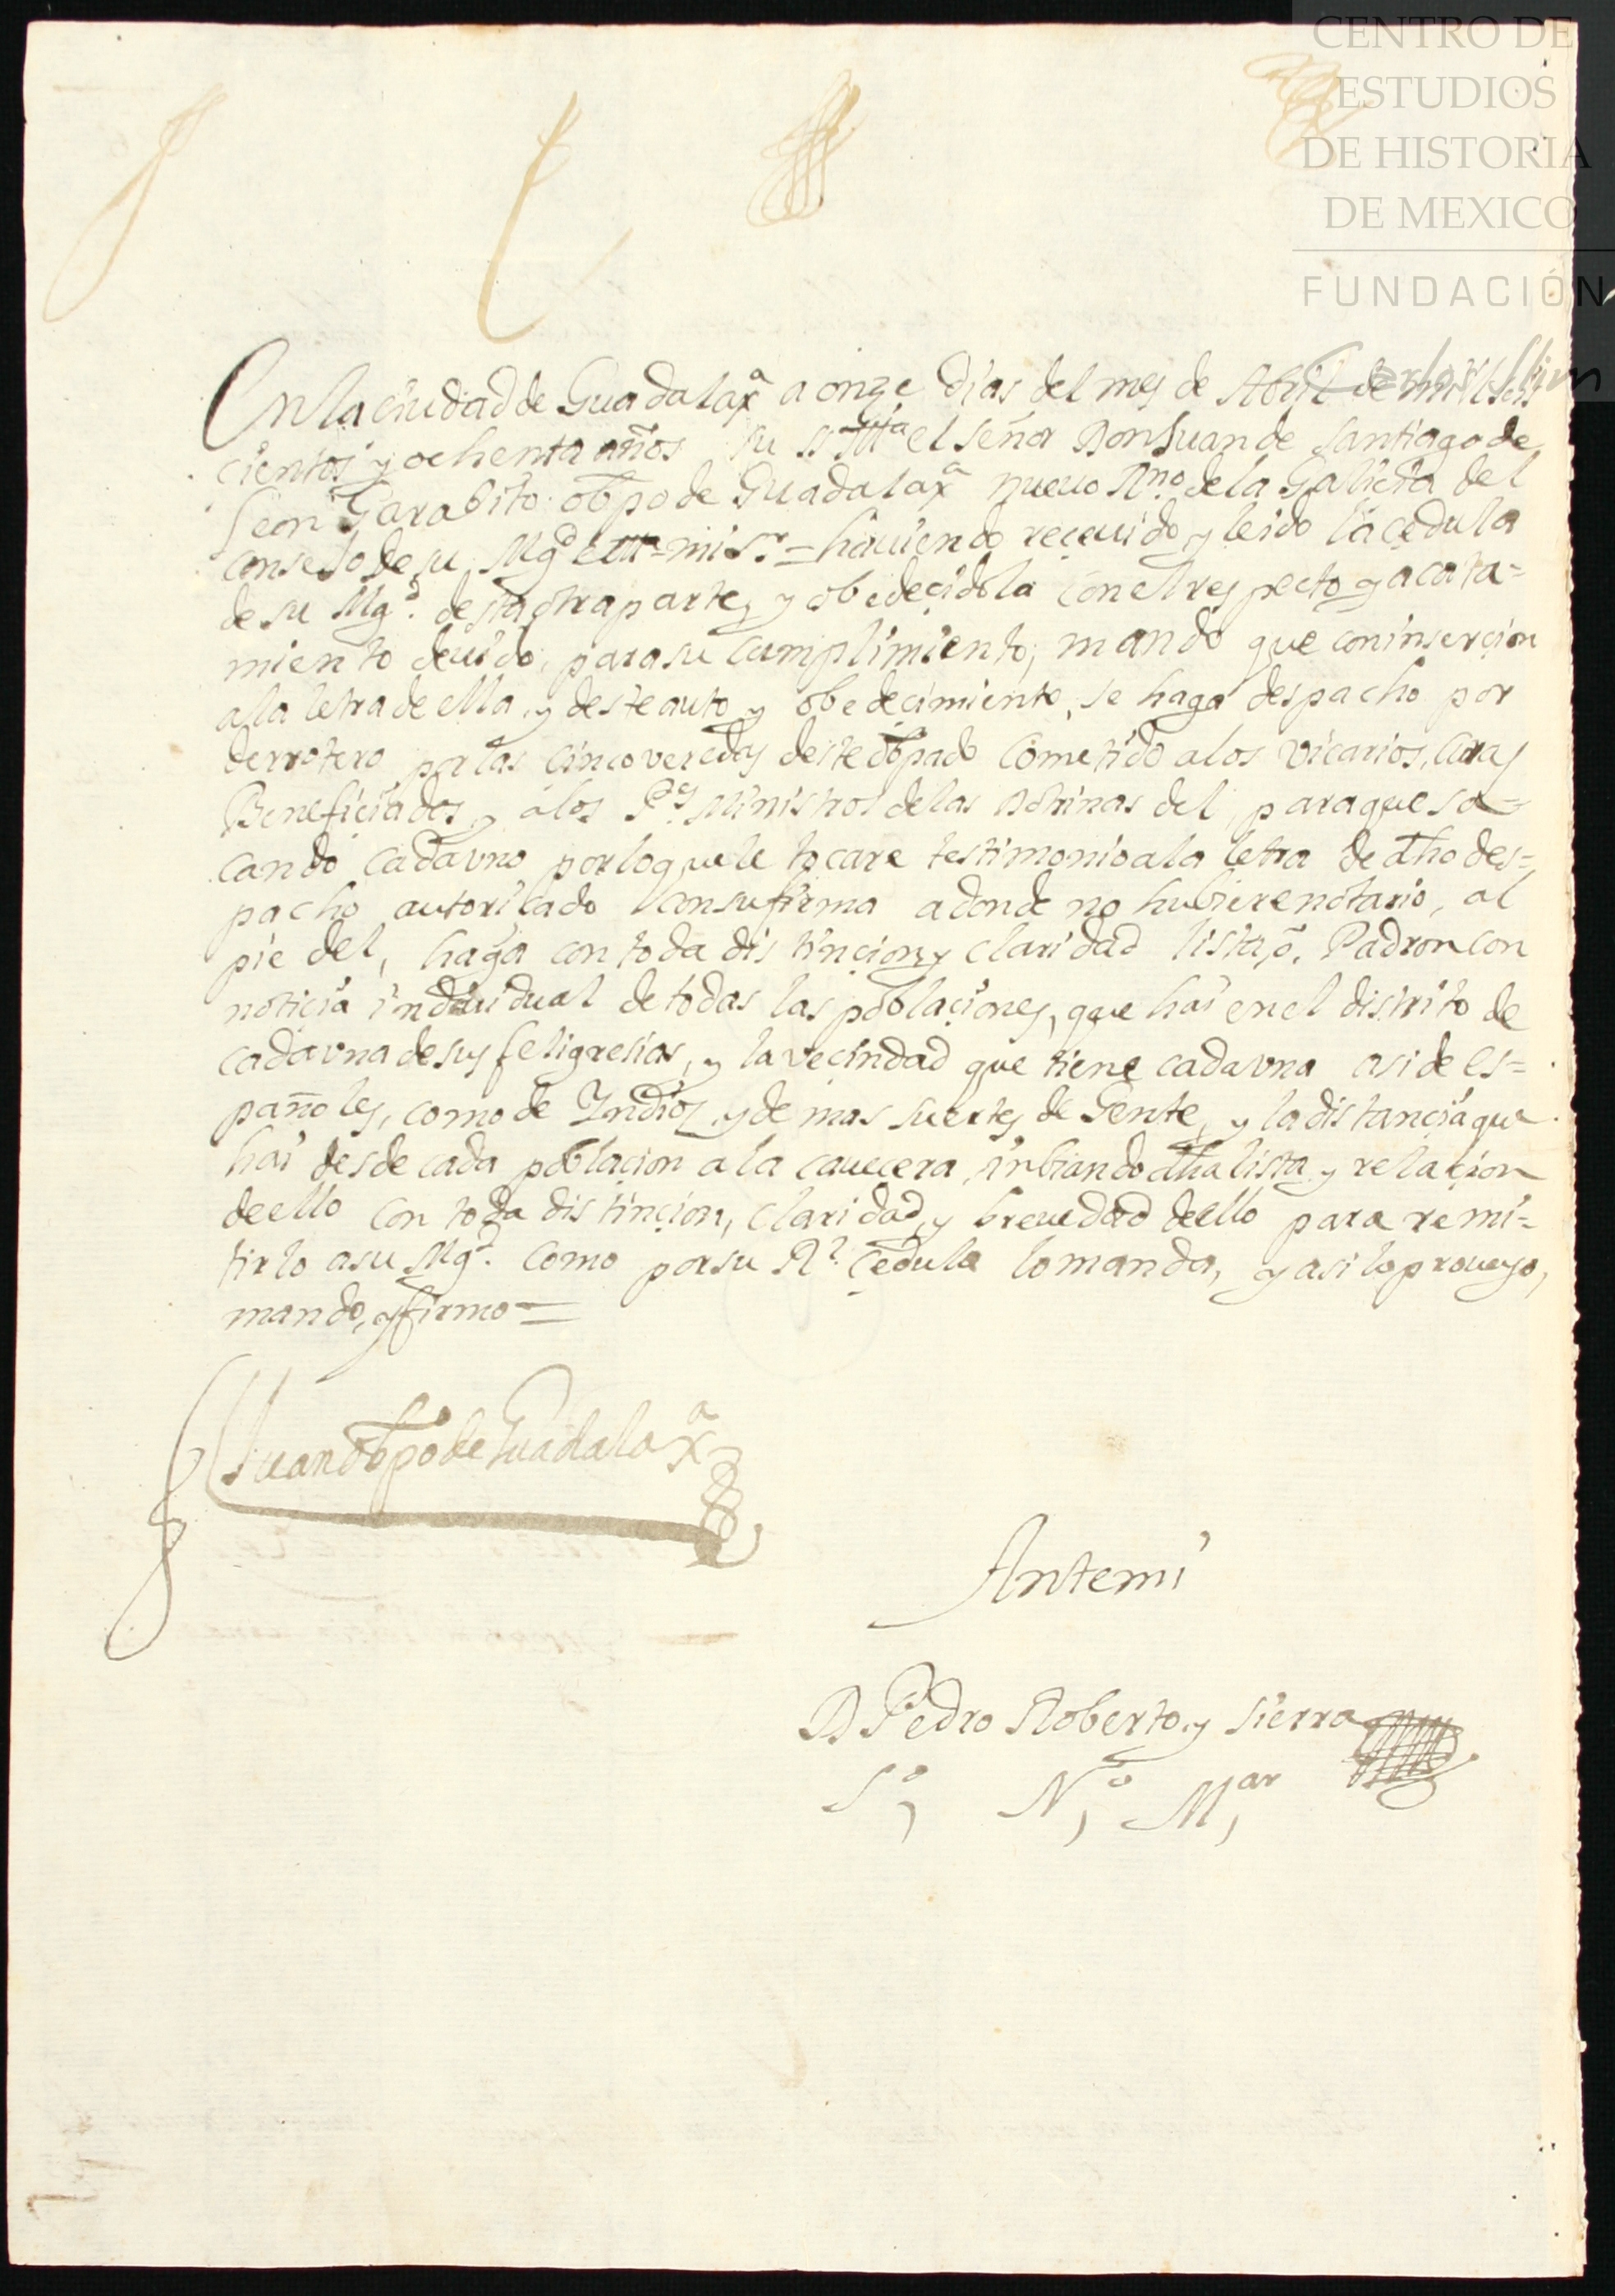 CENTRO DE
ESTUDIOS
DE HISTORIA
DE MEXICO
FUNDACIÓN
Carlos Slim
En la ciudad de Guadalaxª a onze dias del mes de Abril de mil seis
cientos y ochenta años su S Illᵐᵃ el señor Don Juan de Santiago de
leon Garabito obpo de Guadalaxª nueuo Rnº de la Galicia del
consejo de su Mgᵈ mi Sʳ = hauiendo receuido y leido la cedula
de su Mgᵈ. desta otra parte, y obedecidola con el respecto y acata=
miento deuido, para su cumplimiento, mando que con insercion
a la letra de ella, y deste auto y obedecimiento, se haga despacho por
derrotero por las cinco veredas deste obpado cometido a los vicarios, Curas
Beneficiados, y a los Pᵉˢ Ministros de las Dotrinas del, para que sa=
cando cada vno por lo que le tocare testimonio a la letra de dho des=
pacho autoriçado con su firma adonde no hubiere notario, al
pie del, haga con toda distincion y claridad lista, o, Padron con
noticia indiuidual de todas las poblaciones, que hai en el distrito de
cada vna de sus feligresias, y la vecindad que tiene cada vna asi de es=
pañoles, como de Indios, y demas suertes de Gente, y la distancia que
hai desde cada poblacion a la cauecera, inbiando dha lista y relacion
de ello con toda distincion, claridad, y breuedad de ello para remi=
tirlo a su Mgᵈ. como por su Rˡ. Cedula lo manda, y asi lo proueyo,
mando, y firmo =
Juan obpo de Guadalaxª
Ante mi
D Pedro Roberto y Sierra
Sº, Nº, Mᵃʳ,